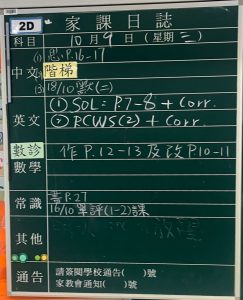 2D
家課日誌
科目 10月9日(星期三)
(1) 思P.16-17
中文 (2) 階梯
(3) 18/10 默(二)
① SDL: P7-8 + Corr.
英文 ② RCWS(2) + Corr.
數診 作P.12-13及改P10-11
數學
書P.27
常識 16/10 單評(1-2)課
其他
通告 請簽閱學校通告( )號
家教會通知( )號